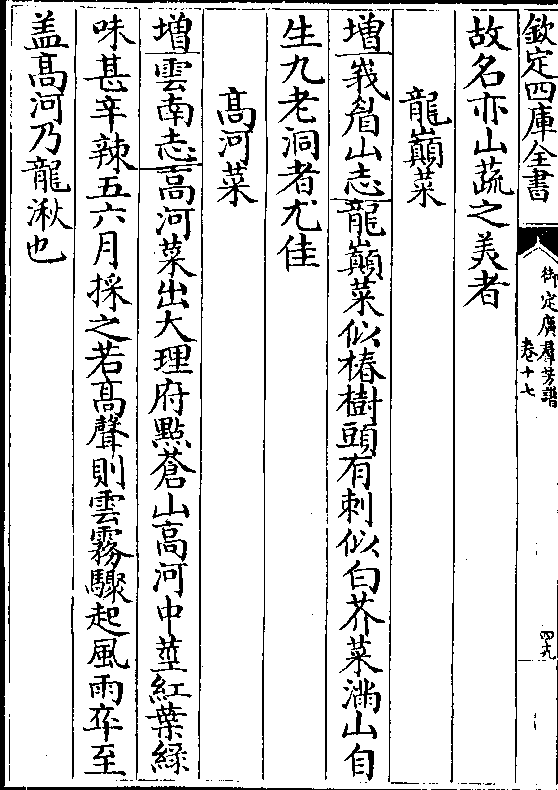 欽定四庫全書
御定廣羣芳譜
卷十七
四九
故名亦山蔬之美者
龍巓菜
増峩眉山志龍巓菜似椿樹頭有刺似白芥菜滿山自
生九老洞者尤佳
髙河菜
増雲南志髙河菜出大理府㸃蒼山髙河中莖紅葉緑
味甚辛辣五六月採之若髙聲則雲霧驟起風雨卒至
盖髙河乃龍湫也